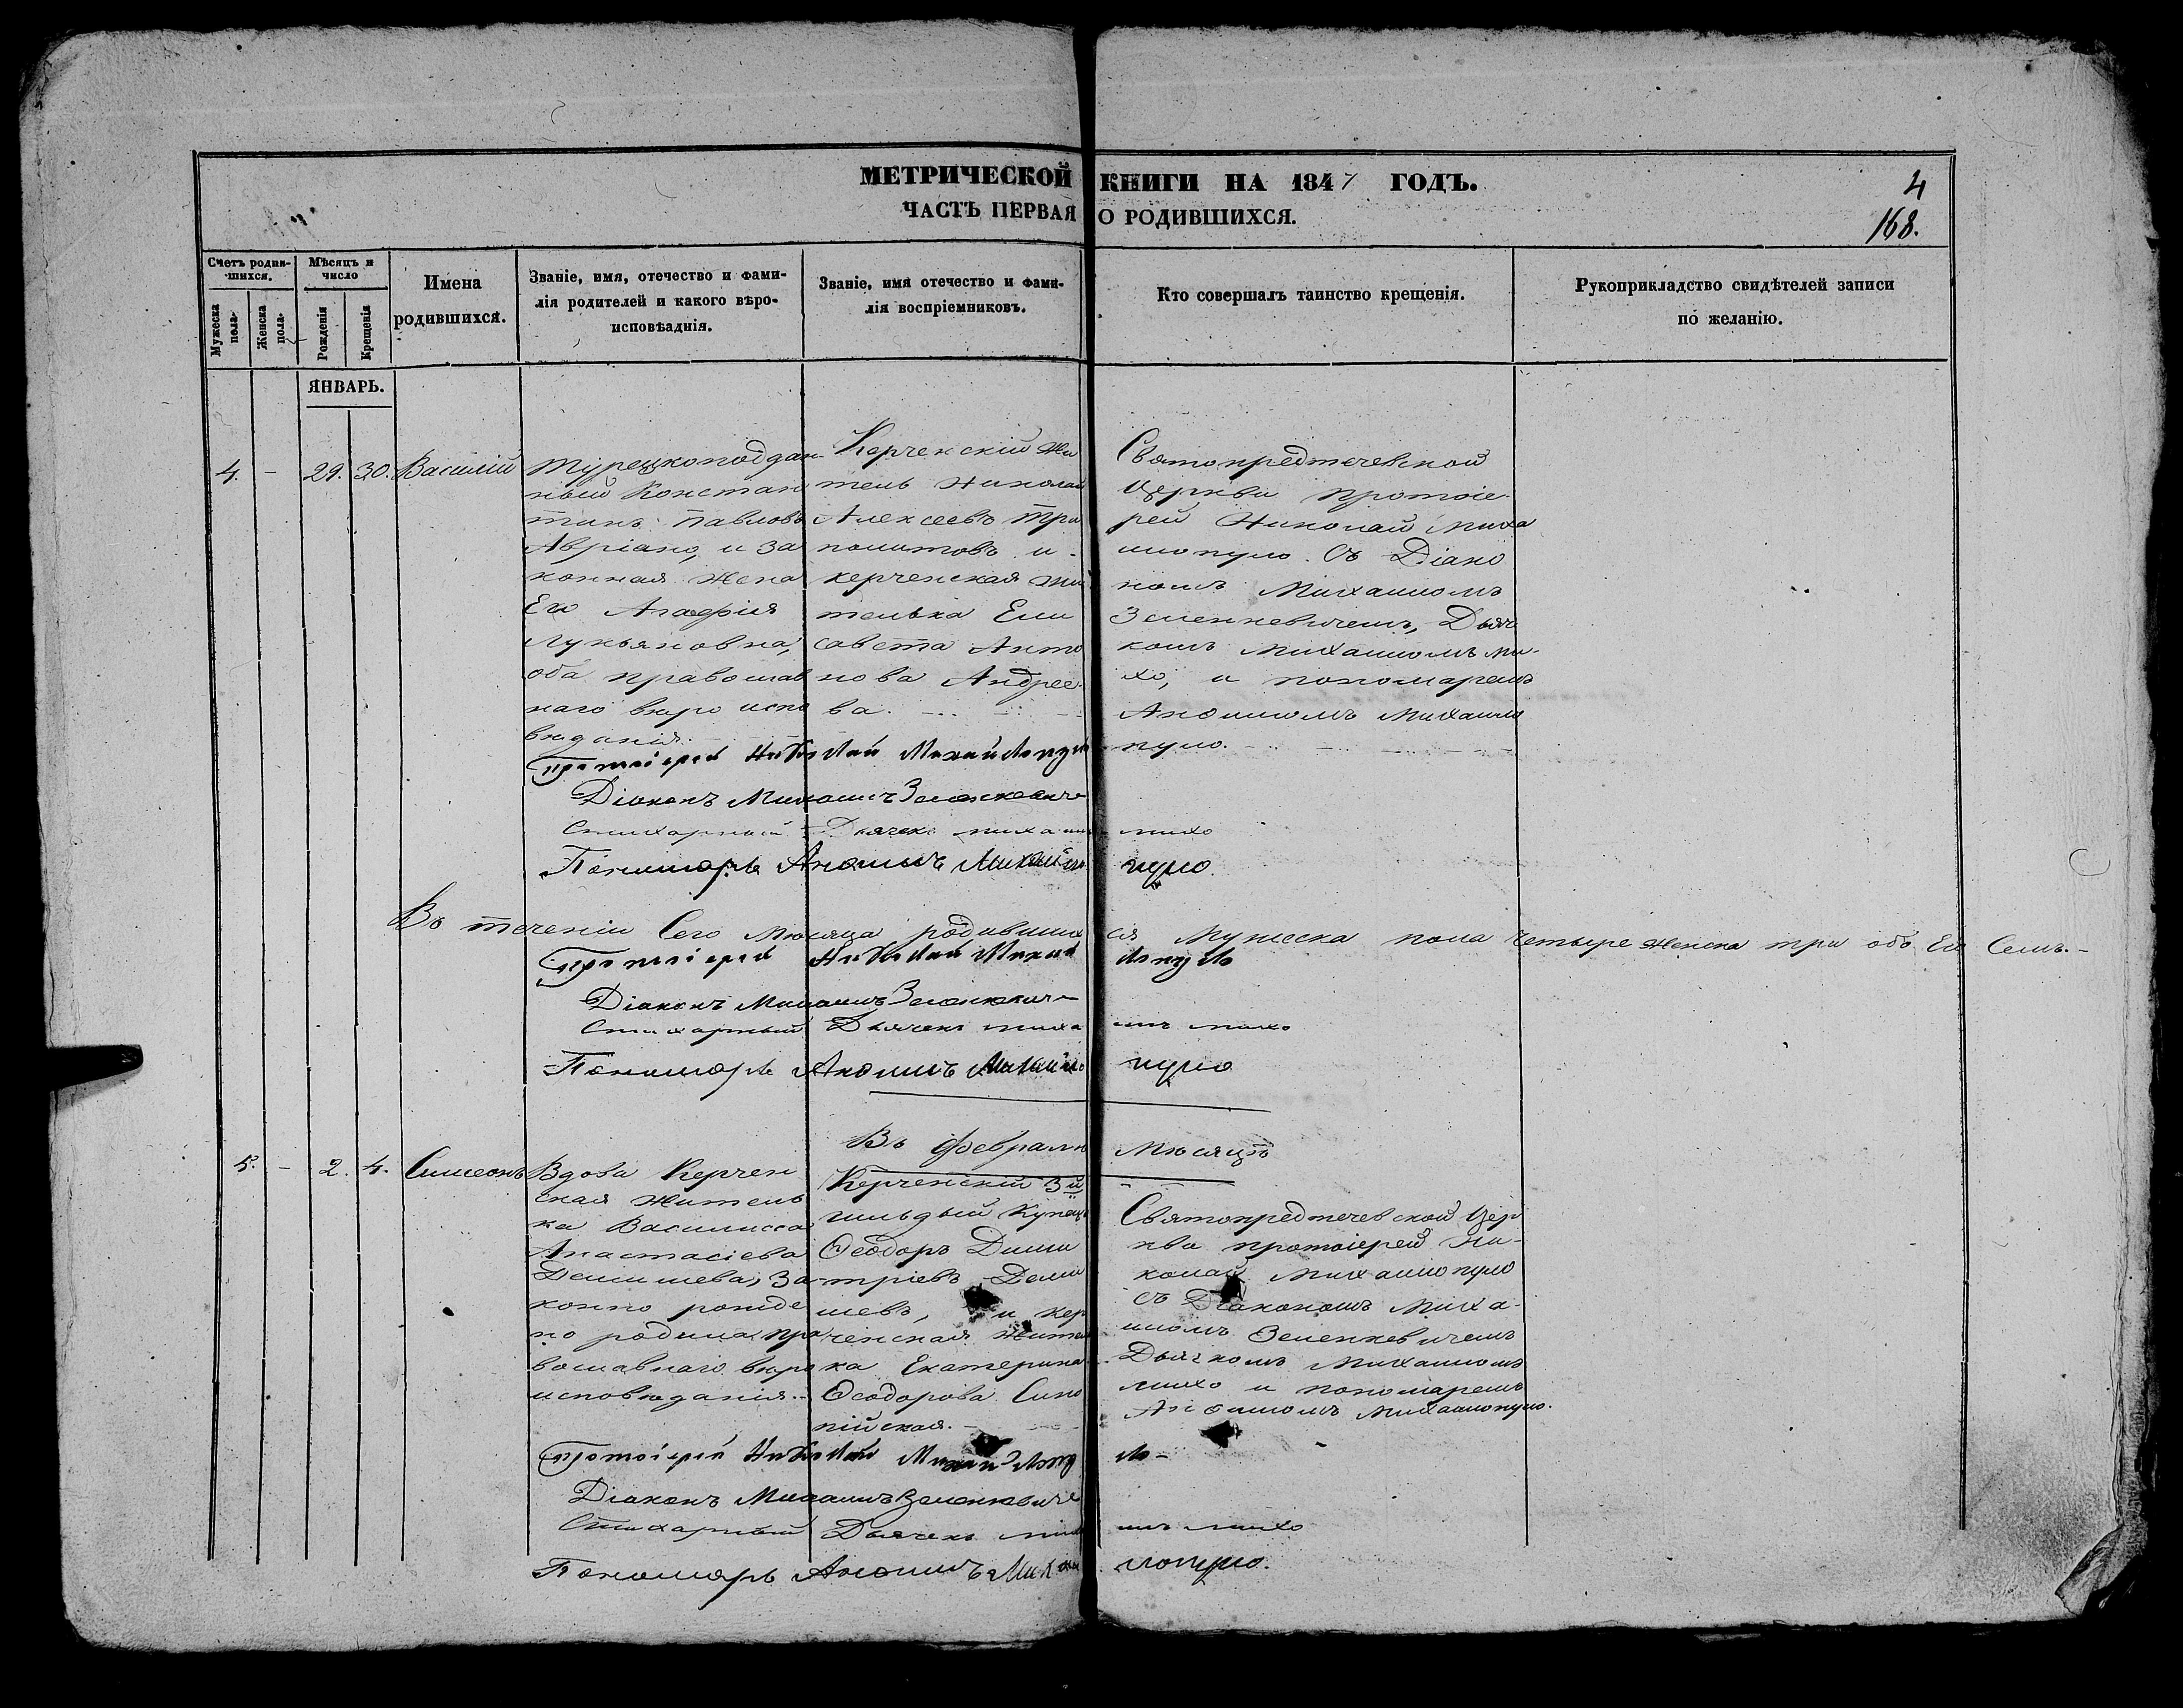 МЕТРИЧЕСКОЙ КНИГИ НА 1847 ГОДЪ.
ЧАСТЬ ПЕРВАЯ О РОДИВШИХСЯ.
4
168.
Счетъ родив-
шихся.
Мужеска
пола.
Женска
пола.
Мѣсяцъ и
число
Рожденія
Крещенія
Имена
родившихся.
Званіе, имя, отечество и фами-
лія родителей и какого вѣро-
исповѣаднія.
Званіе, имя отечество и фами-
лія воспріемниковъ.
Кто совершалъ таинство крещенія.
Рукоприкладство свидѣтелей записи
по желанію.
ЯНВАРЬ.
4. - 29. 30. Василій
Турецкоподдан-
ный Констан
тинъ Павловъ
Авріано, и за
конная жена
Его Агафія
Лукьяновна,
оба православ
наго вѣро испо
вѣданія.
Керченскій жи
тель Николай
Алексеевъ Три
политовъ и
керченская жи
телька Ели
савета Анто
нова Андрее
ва.
Святопредтечевской
Церкви протоіе-
рей Николай Миха
илопуло. Съ Діако
номъ Михаиломъ
Зеленкевичемъ, Дьяч
комъ Михаиломъ Ми-
хо, и пономаремъ
Анфимомъ Михаило
пуло.
Протоіерей Николай Михайлопуло
Діаконъ Михаилъ Зеленкевичъ
Стихарный Дьячекъ Михаилъ Михо
Пономарь Анфимъ Михайлопуло.
Въ теченіи Сего Мѣсяца родившихся Мужеска пола четыре женска три обо Его Семь.-
Протоіерей Николай Михайлопуло
Діаконъ Михаилъ Зеленкевичъ
Стихарный Дьячекъ Михаилъ Михо
Пономарь Анфимъ Михайлопуло
Въ Февралѣ Мѣсяцѣ
5. - 2. 4. Симеонъ
Вдова Керчен
ская житель
ка Василисса
Анастасіева
Демишева, за
конно рожде
но родила, пра
вославнаго вѣро
исповѣданія.-
Керченскій 3й
гильдый Купецъ
Ѳеодоръ Дими
тріевъ Деми
шевъ, и кер
ченская житель
ка Екатерина
Ѳеодорова Сино
пійская.-
Святопредтечевской Цер
кви протоіерей Ни-
колай Михаилопуло
съ Діакономъ Миха-
иломъ Зеленкевичемъ
Дьячкомъ Михаиломъ
Михо и пономаремъ
Анфимомъ Михаилопуло.
Протоіерей Николай Михайлопуло-
Діаконъ Михаилъ Зеленкевичъ
Стихарный Дьячекъ Михаилъ Михо
Пономарь Анфимъ Михайлопуло.